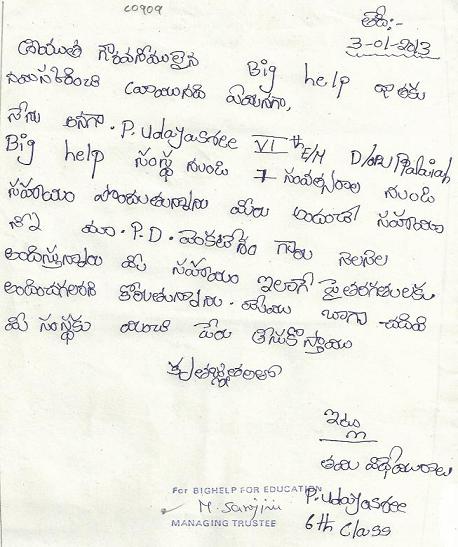 C0909
తేదీ:-
3-01-2013
శ్రీయుత గౌరవనీయులైన Big help దాతకు
నమస్కరించి వ్రాయునది ఏమనగా,
నేను అనగా. P. Udayasree VI th E/M D/o
Big help సంస్థ నుండి 7 సంవత్సరాల నుండి
సహాయం పొందుతున్నాను మీరు అందించే సహాయం
మా. P.D. వెంకటేశం గారు నెలనెల
అందిస్తున్నారు మీ సహాయం ఇలాగే పై తరగతులకు
అందించగలరని కోరుతున్నాను. మేము బాగా చదివి
మీ సంస్థకు మంచి పేరు తీసుకొస్తాము
కృతజ్ఞతలతో
ఇట్లు
తమ విధేయురాలు
P. Udayasree
6th Class
For BIGHELP FOR EDUCATION
M. Sarojini
MANAGING TRUSTEE